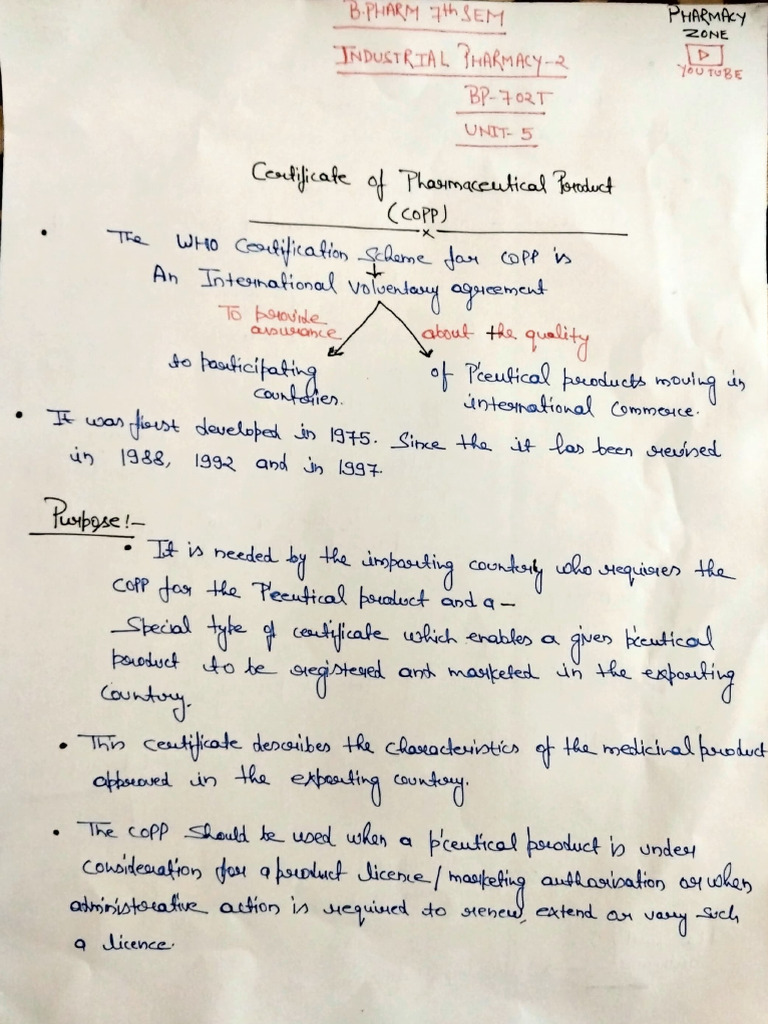 B.PHARM 7th SEM
PHARMACY
ZONE
YOUTUBE
INDUSTRIAL PHARMACY-2
BP-702T
UNIT-5
Certificate of Pharmaceutical Product
(COPP)
• The WHO Certification Scheme for COPP is
An International Voluentary agreement
To provide
assurance
about the quality
to participating
countries.
of P'ceutical products moving in
international Commerce.
• It was first developed in 1975. Since the it has been revised
in 1988, 1992 and in 1997.
Purpose:-
• It is needed by the importing country who requires the
COPP for the P'ceutical product and a -
Special type of certificate which enables a given p'ceutical
product to be registered and marketed in the exporting
Country.
• This certificate describes the characteristics of the medicinal product
approved in the exporting country.
• The COPP should be used when a p'ceutical product is under
consideration for a product licence/marketing authorisation or when
administorative action is required to renew, extend or vary such
a licence.